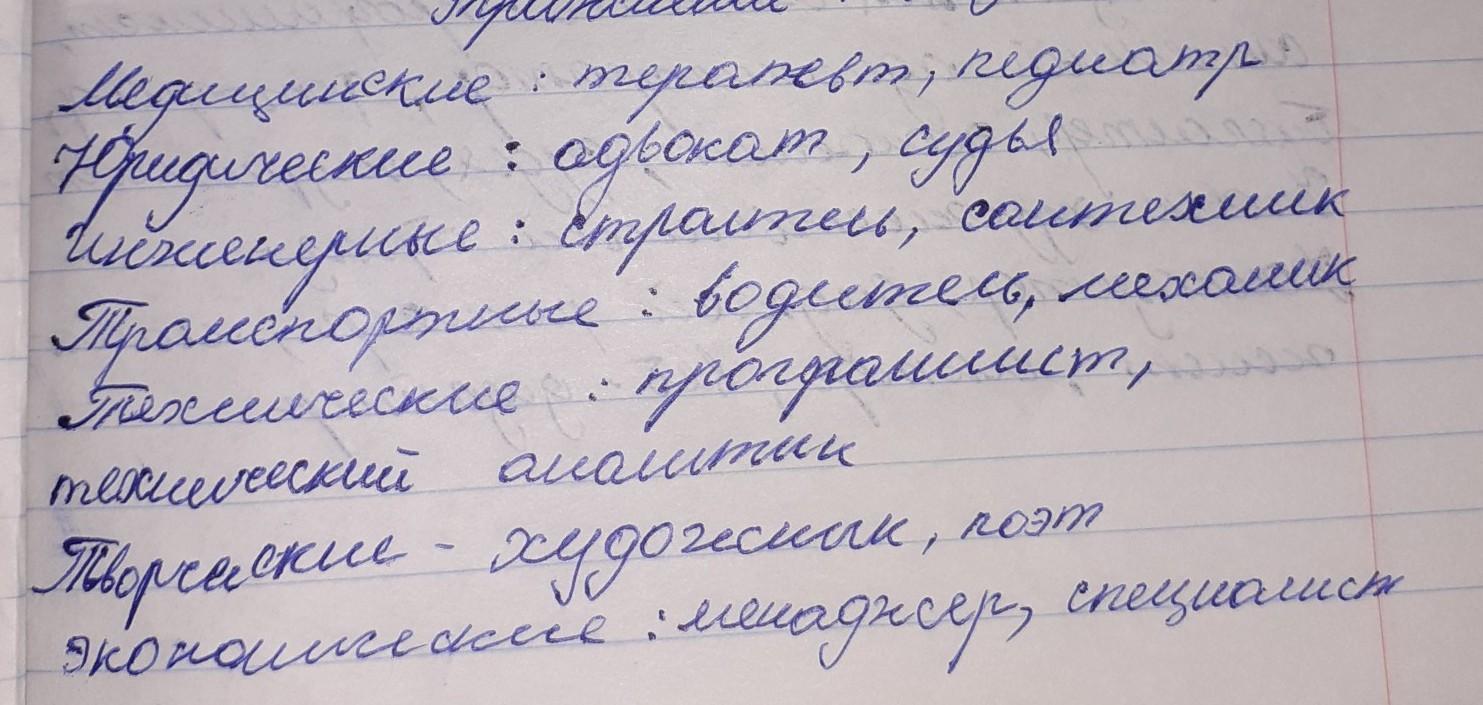 Медицинские : терапевт, педиатр
Юридические : адвокат, судья
Инженерные : строитель, сантехник
Транспортные : водитель, механик
Технические : программист,
технический аналитик
Творческие - художник, поэт
Экономические : менаджер, специалист